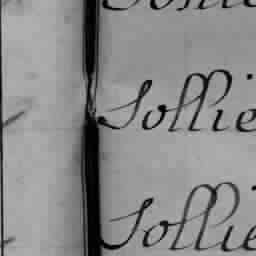 Sollie
Sollie